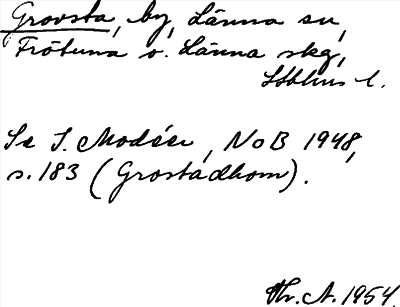 Grovsta, by, Länna sn,
Frötuna o. Länna skg,
Sthlms l.
Se I. Modéer, NoB 1948,
s. 183 (Grostadhom).
Th. A. 1954.